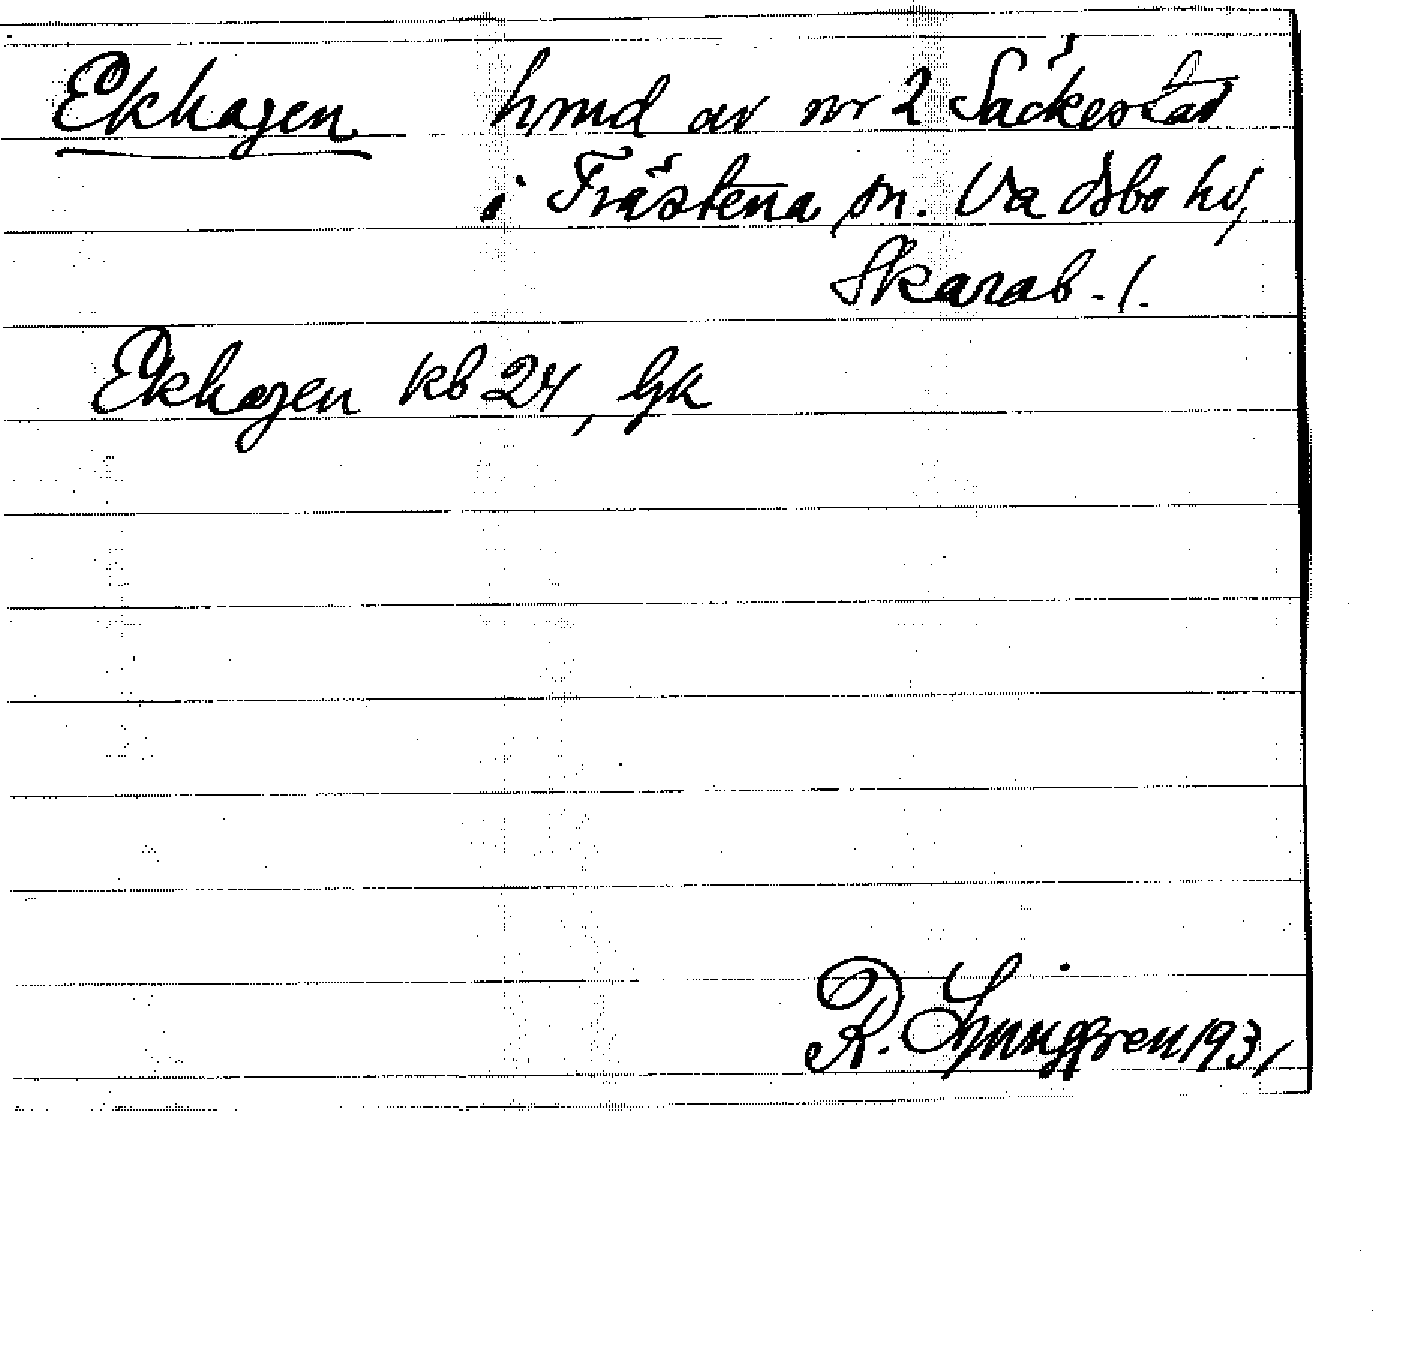 Ekhagen hmd av nr 2 Säckestad
i Trästena sn. Vadsbo hd,
Skarab. l.
Ekhagen kb 24, Gk
R. Ljunggren 1931